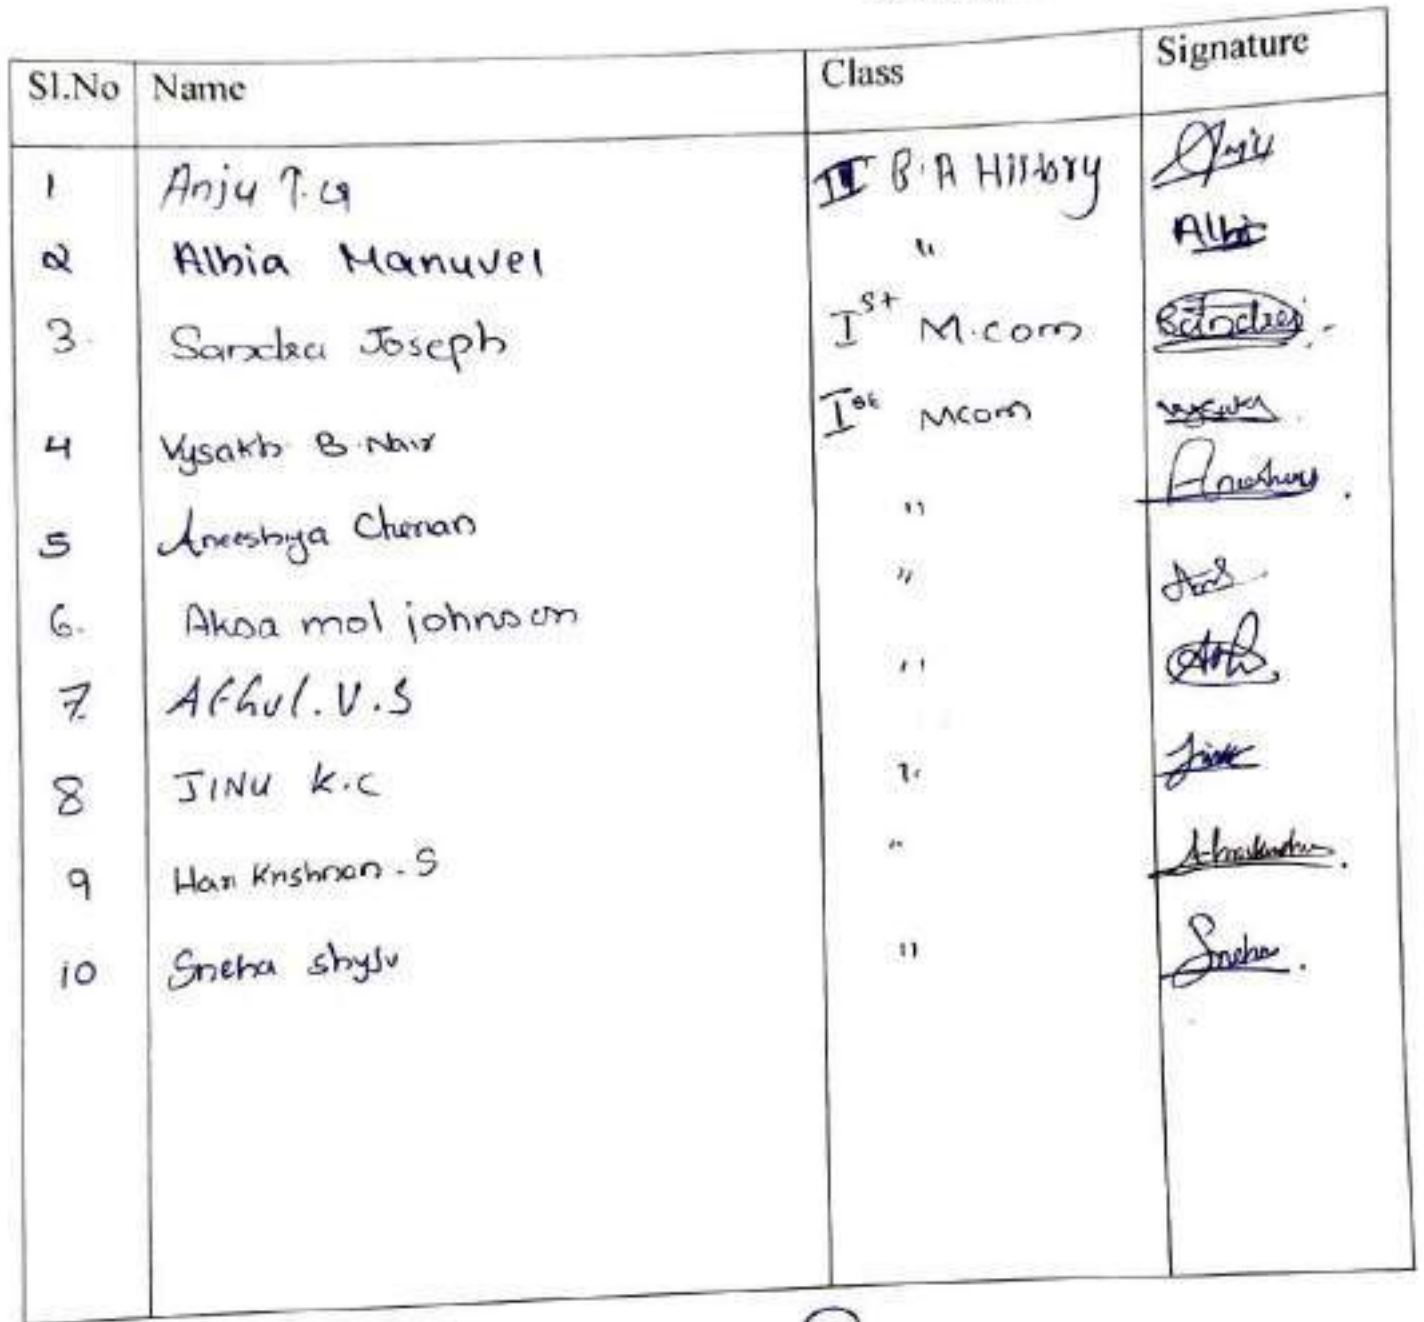 Sl.No Name Class Signature
1 Anju T.G II B.A History Anju
2 Albia Manuvel " Albi
3. Sandra Joseph I st M.com Sandra
4 Vysakh B.Nair I st Mcom
5 Aneeshya Cherian "
6. Aksa mol johnson "
7. Athul.V.S "
8 JINU K.C " Jinu
9 Hari Krishnan.S "
10 Sneha shyju " Sneha